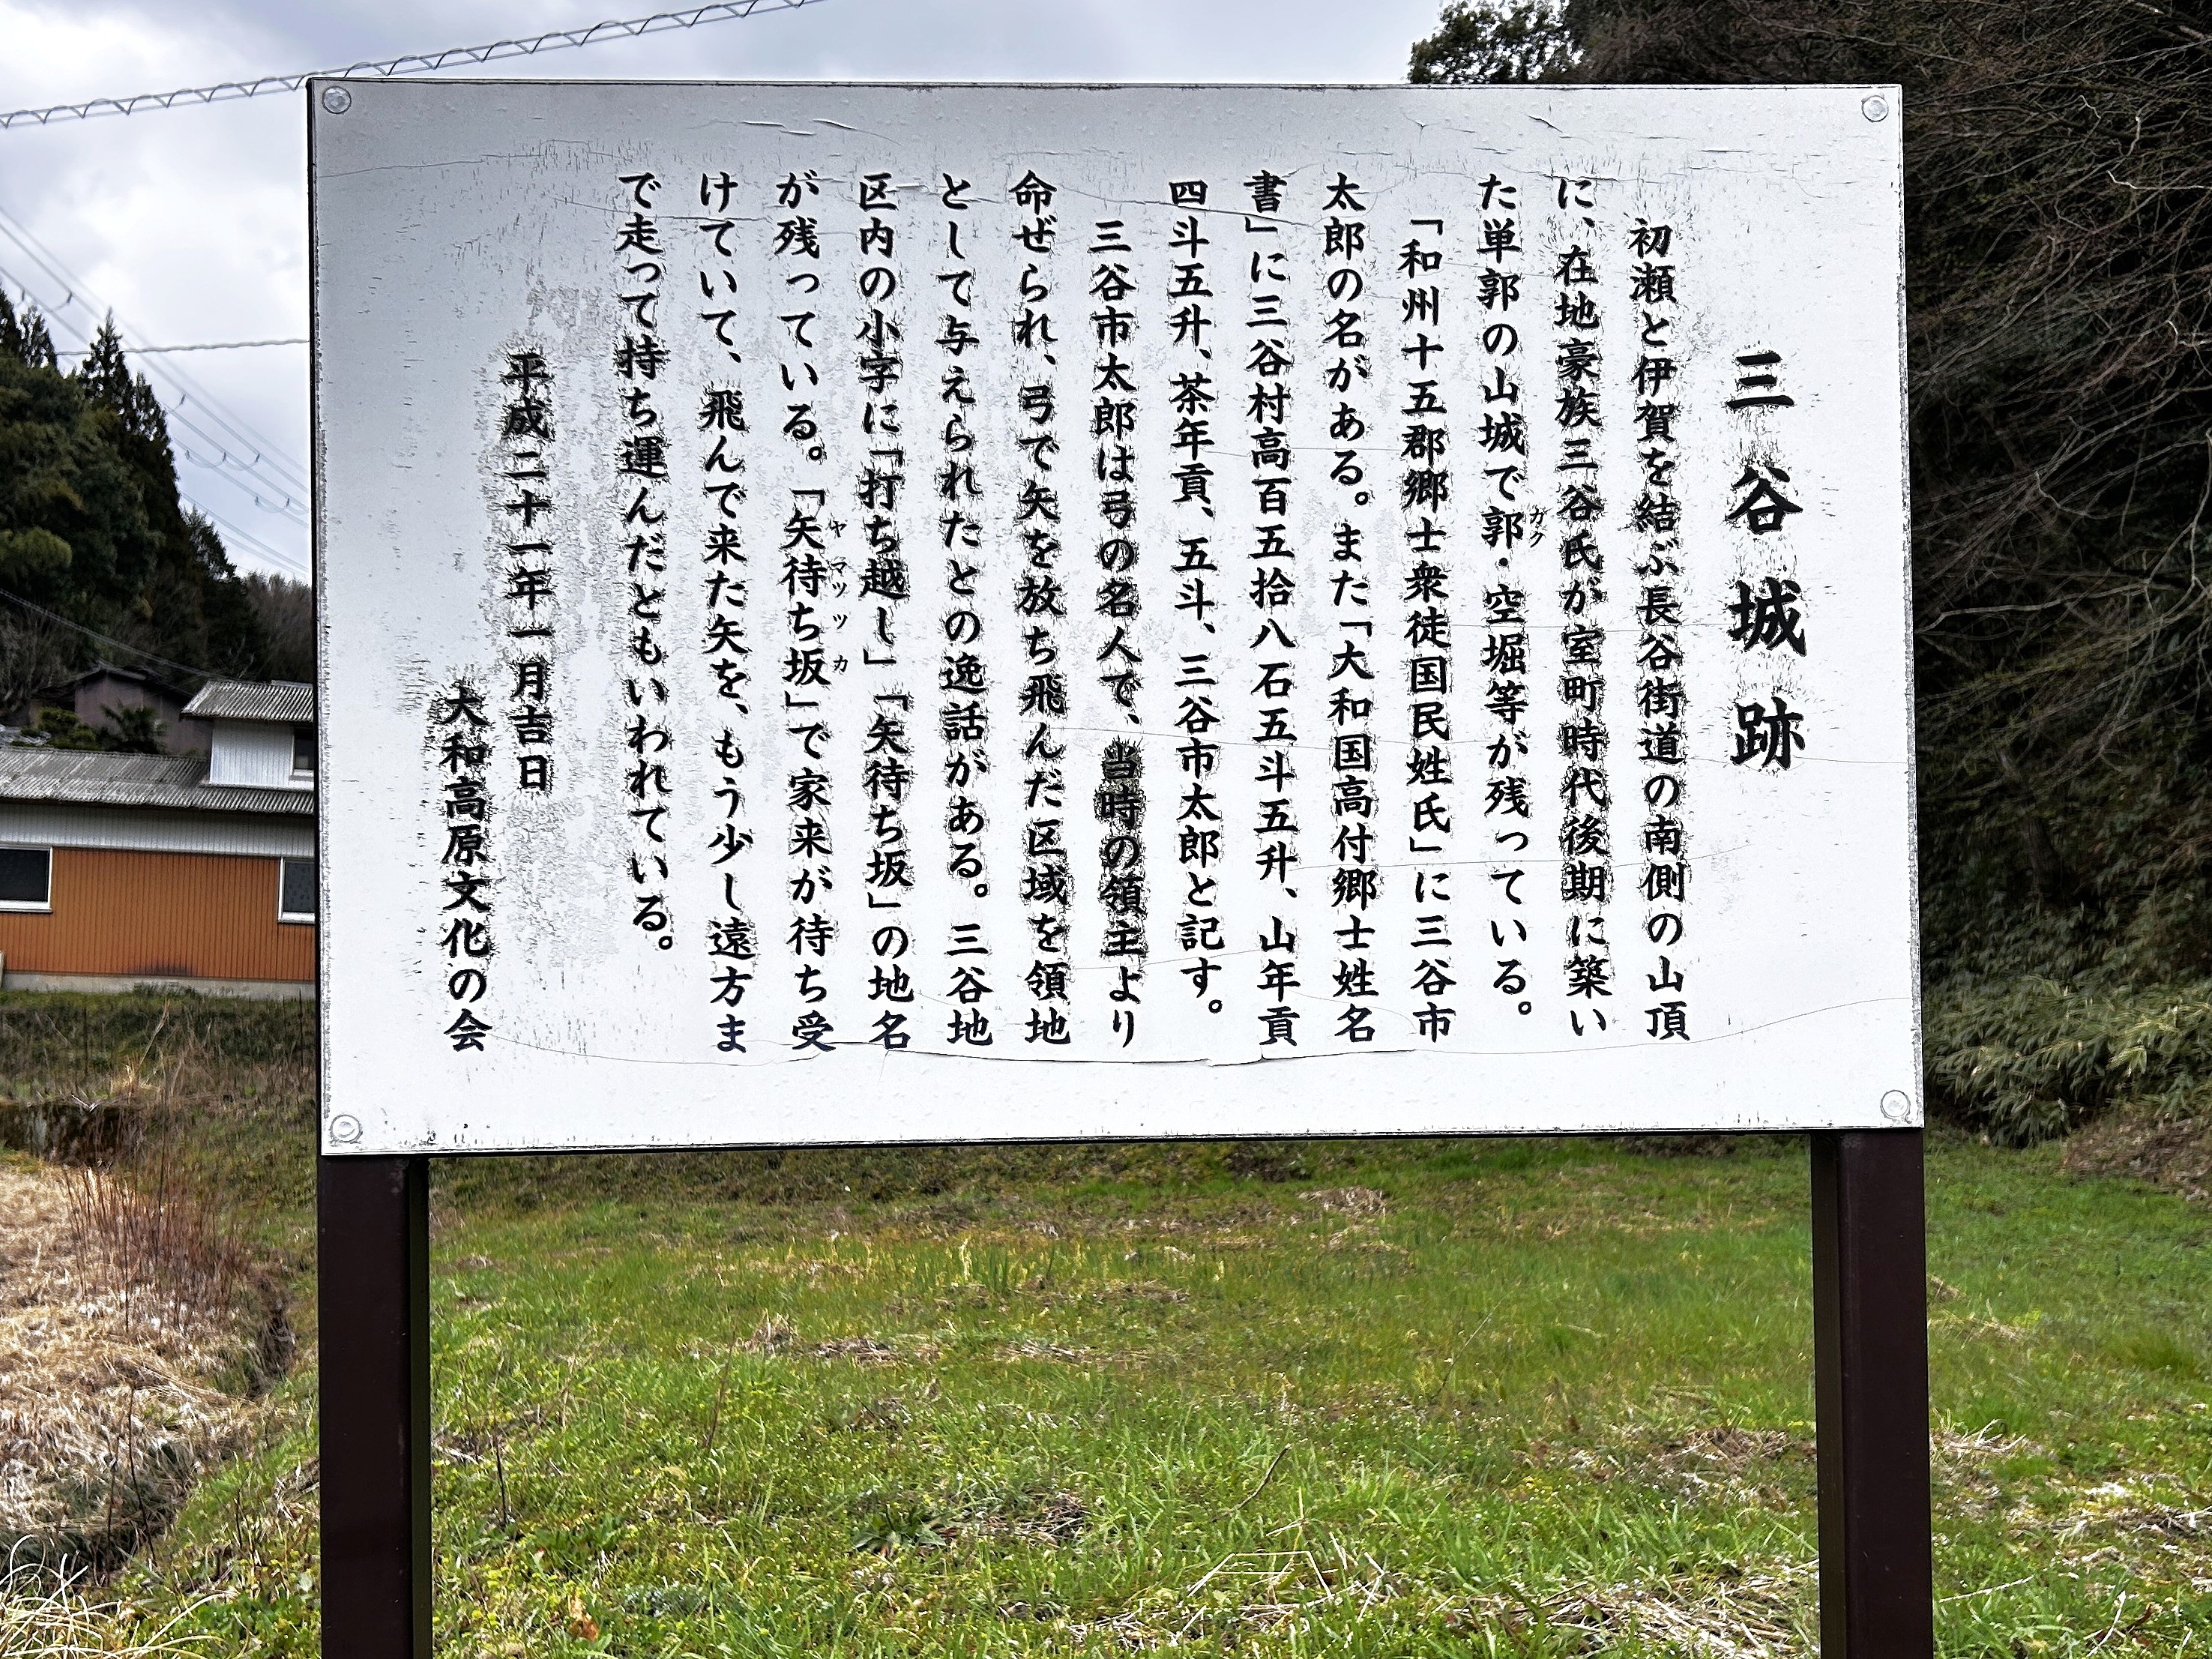 三谷城跡
初瀬と伊賀を結ぶ長谷街道の南側の山頂
に、在地豪族三谷氏が室町時代後期に築い
た単郭の山城で郭・空堀等が残っている。
ガク
「和州十五郡郷士衆徒国民姓氏」に三谷市
太郎の名がある。また「大和国高付郷士姓名
書」に三谷村高百五拾八石五斗五升、山年貢
四斗五升、茶年貢、五斗、三谷市太郎と記す。
三谷市太郎は弓の名人で、当時の領主より
命ぜられ、弓で矢を放ち飛んだ区域を領地
として与えられたとの逸話がある。三谷地
区内の小字に「打ち越し」「矢待ち坂」の地名
が残っている。「矢待ち坂」で家来が待ち受
ヤマツツカ
けていて、飛んで来た矢を、もう少し遠方ま
で走って持ち運んだともいわれている。
平成二十一年一月吉日
大和高原文化の会